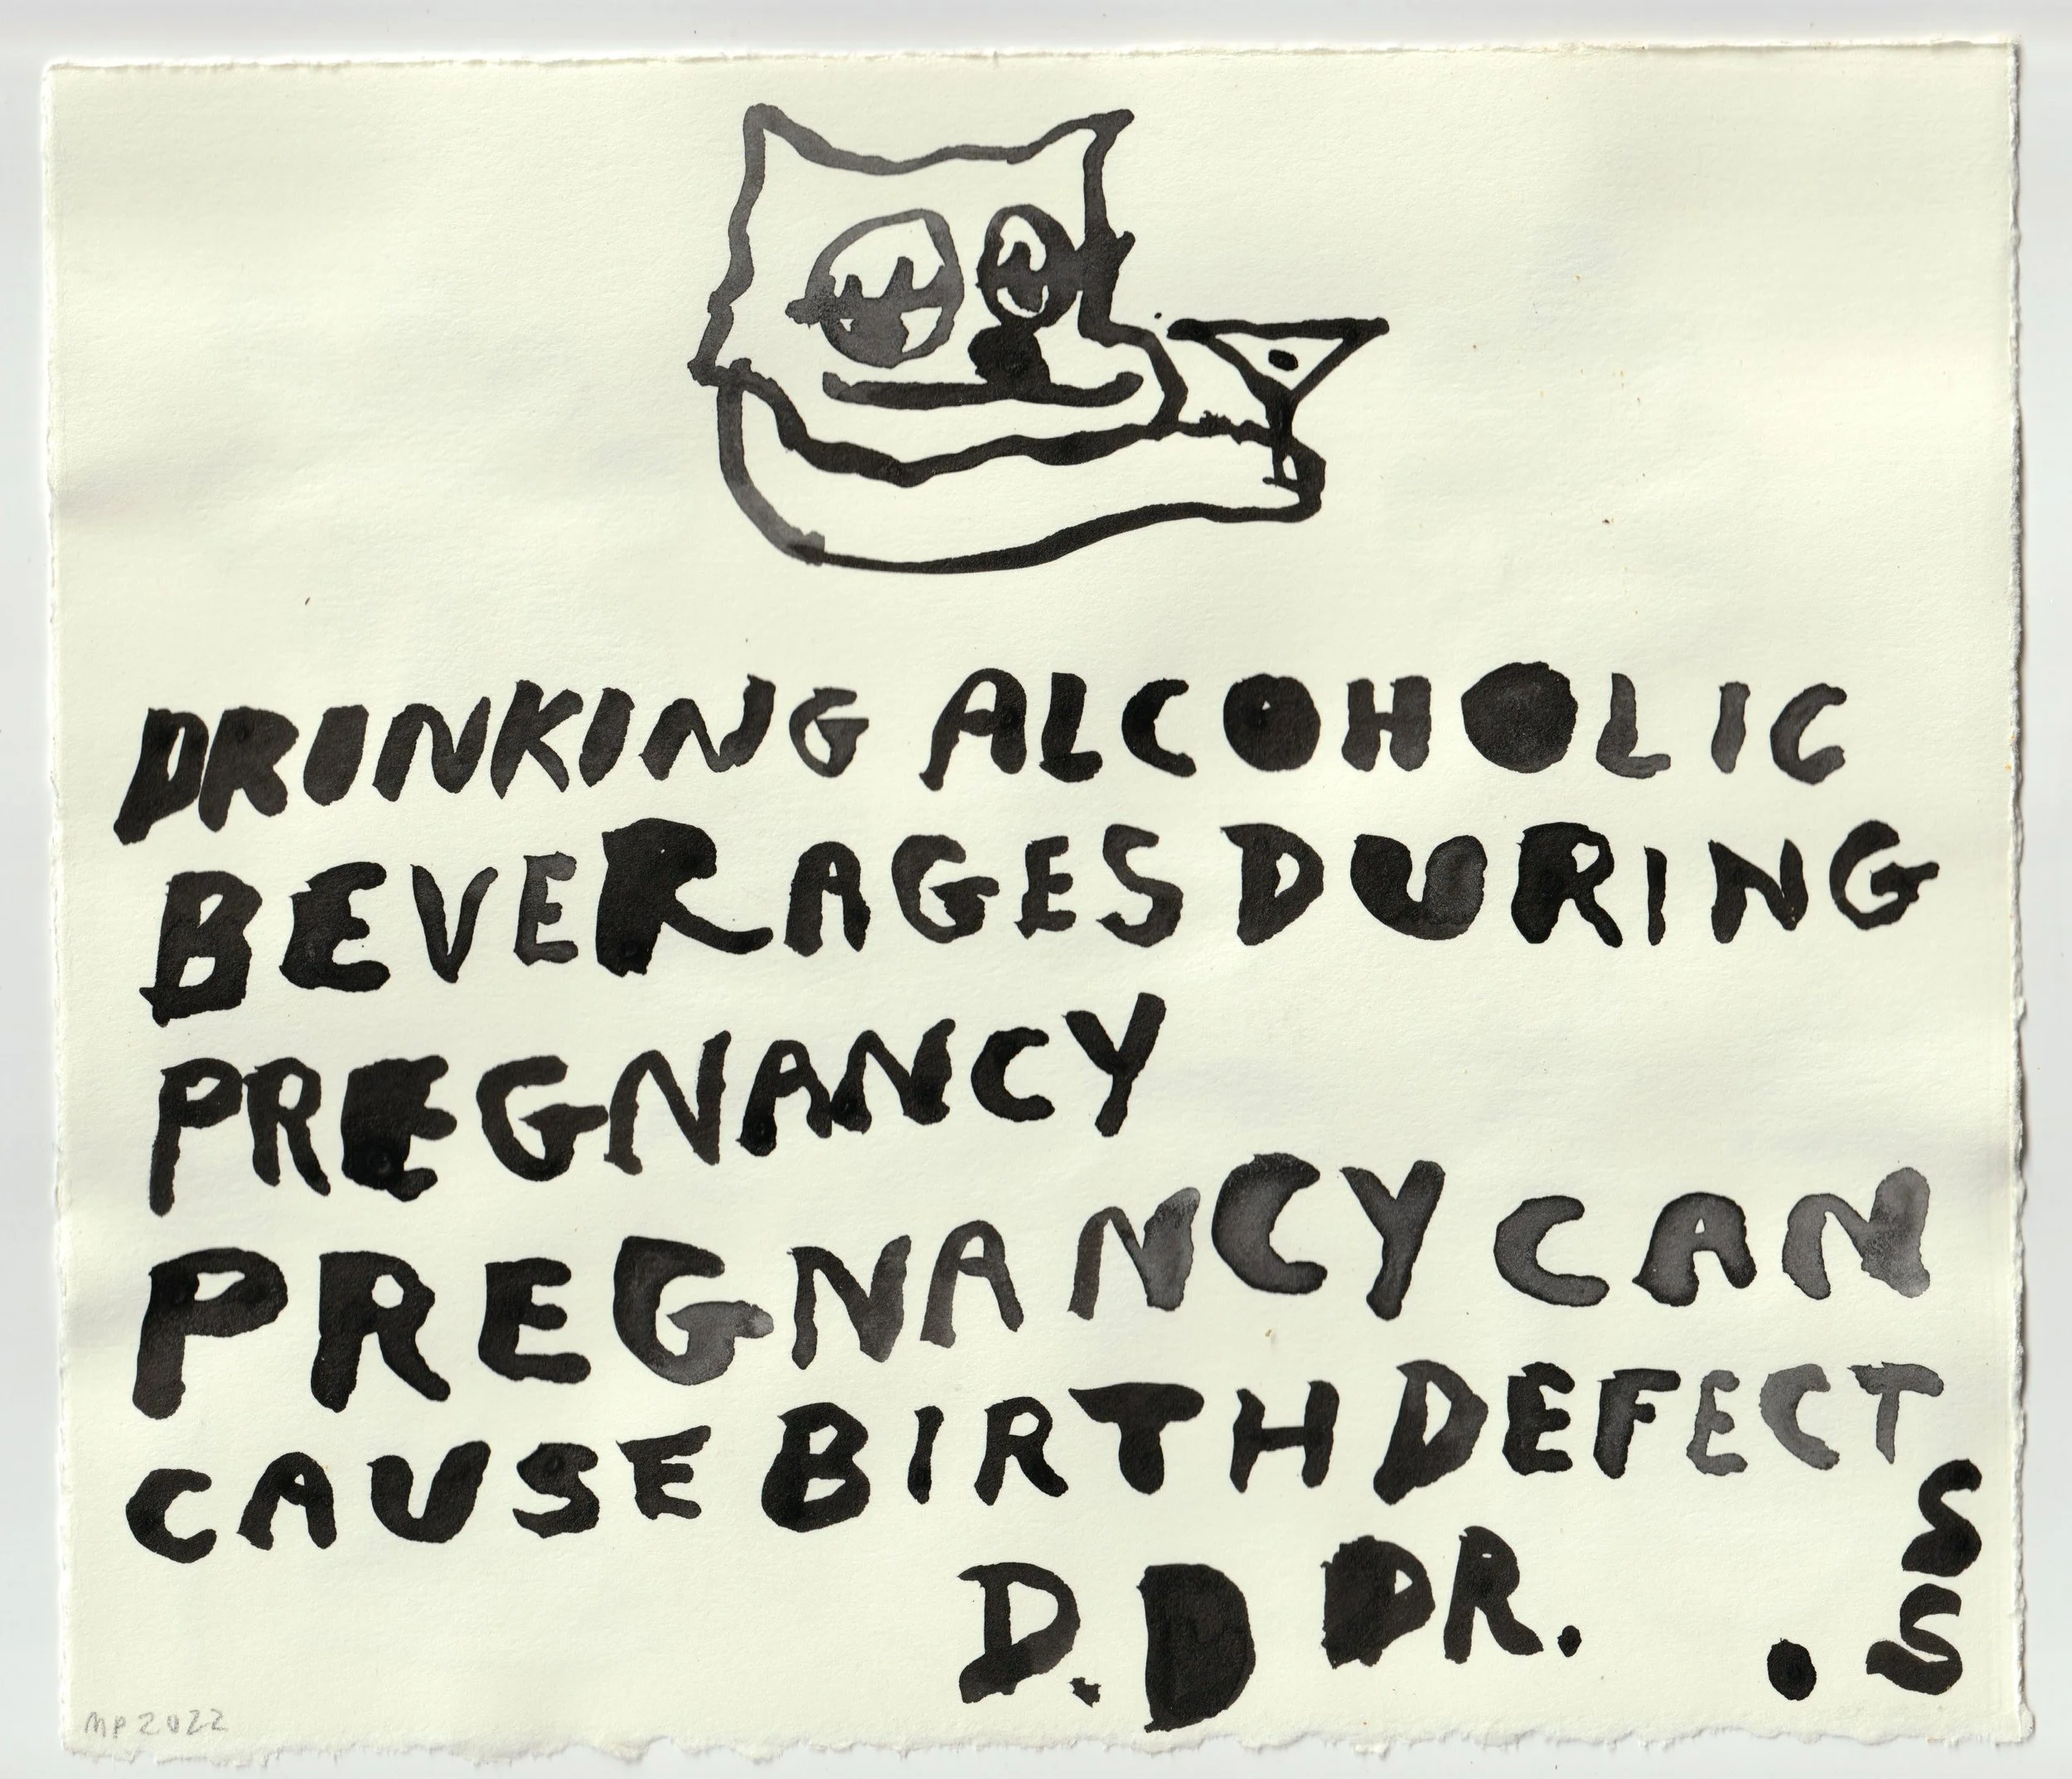 DRINKING ALCOHOLIC
BEVERAGES DURING
PREGNANCY
PREGNANCY CAN
CAUSE BIRTH DEFECT
S
D.D DR. . S
MP 2022